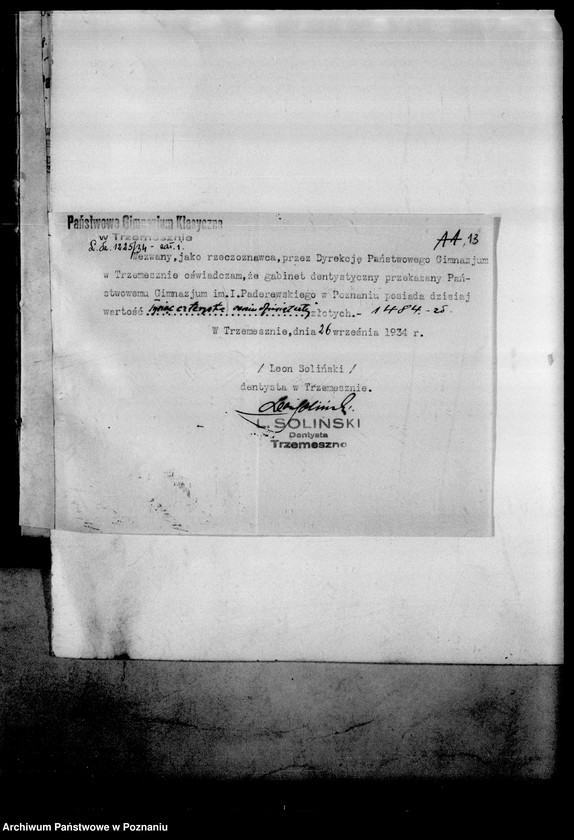 Państwowe Gimnazjum Klasyczne
w Trzemesznie
L. dz. 1225/34 - zał. 1.
11, 13
Wezwany, jako rzeczoznawca, przez Dyrekcję Państwowego Gimnazjum
w Trzemesznie oświadczam, że gabinet dentystyczny przekazany Pań-
stwowemu Gimnazjum im. I. Paderewskiego w Poznaniu posiada dzisiaj
wartość tysiąc czterysta złotych.- 1484 - zł.
W Trzemesznie, dnia 26 września 1934 r.
/ Leon Soliński /
dentysta w Trzemesznie.
L. SOLIŃSKI
Dentysta
Trzemeszno
Archiwum Państwowe w Poznaniu